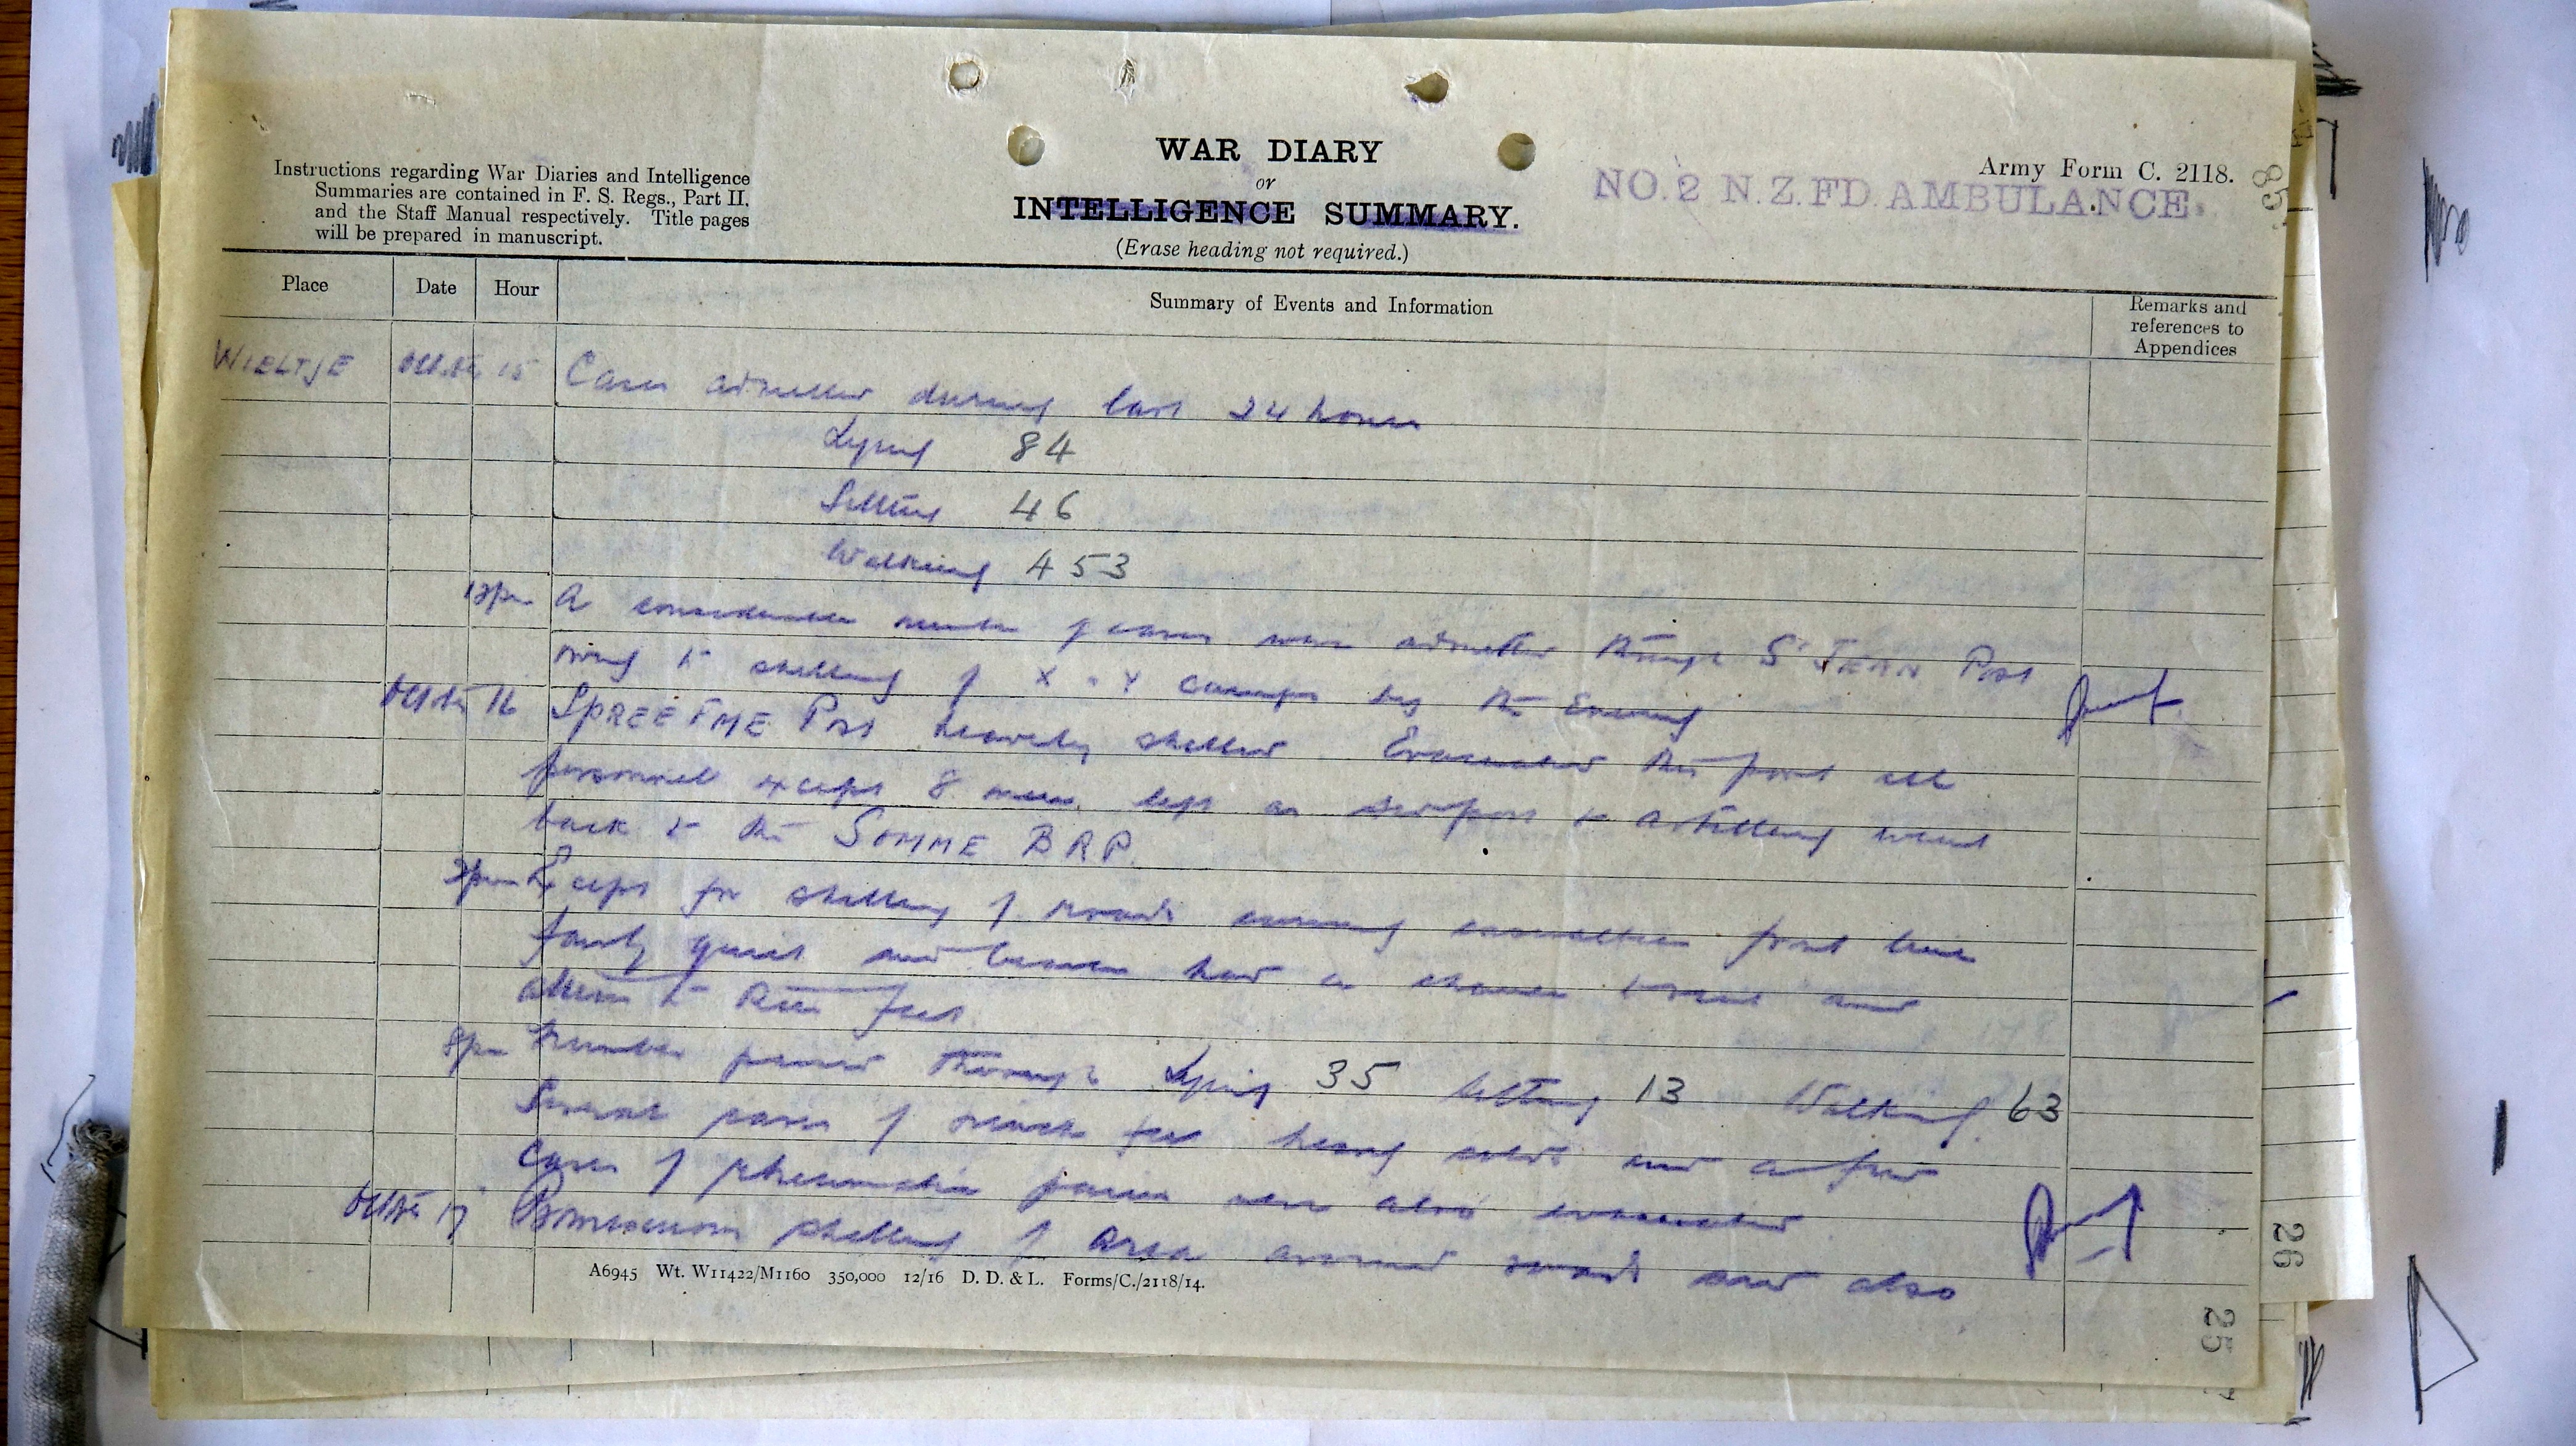 WAR DIARY
or
INTELLIGENCE SUMMARY.
(Erase heading not required.)
Instructions regarding War Diaries and Intelligence
Summaries are contained in F. S. Regs., Part II.
and the Staff Manual respectively. Title pages
will be prepared in manuscript.
Army Form C. 2118.
NO. 2 N.Z. FD. AMBULANCE.
85
Place Date Hour Summary of Events and Information Remarks and
references to
Appendices
WIELTJE Octbr 15 Cases admitted during last 24 hours
Lying 84
Sitting 46
Walking 453
12pm A considerable number of cases were admitted through St JEAN Post
owing to shelling of X & Y camps by the Enemy
Octbr 16 SPREE FME Post heavily shelled. Evacuated this post all
personnel except 8 men left as aid post to artillery went
back to the SOMME BRP.
3pm Except for shelling of roads causing casualties front line
fairly quiet and bearers had a chance to rest and
attend to their feet.
8pm Number passed through Lying 35 Sitting 13 Walking 63
Several cases of trench feet heavy colds and a few
cases of rheumatic pains were also evacuated
Octbr 17 Promiscuous shelling of area around roads and also
A6945 Wt. W11422/M1160 350,000 12/16 D. D. & L. Forms/C./2118/14.
26
25